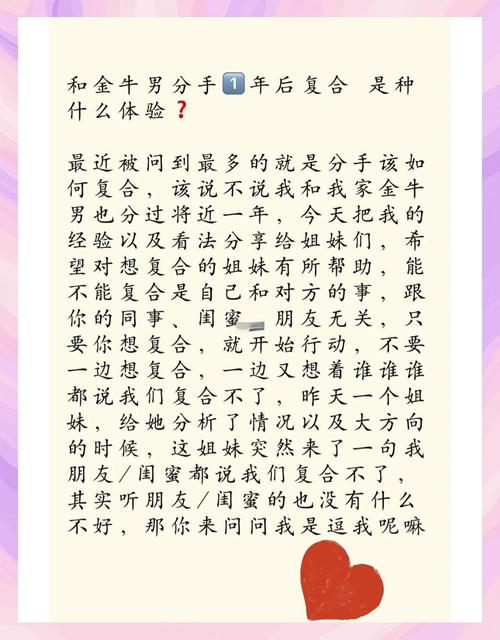 和金牛男分手1️⃣年后复合 是种
什么体验❓
最近被问到最多的就是分手该如
何复合，该说不说我和我家金牛
男也分过将近一年，今天把我的
经验以及看法分享给姐妹们，希
望对想复合的姐妹有所帮助，能
不能复合是自己和对方的事，跟
你的同事、闺蜜 朋友无关，只
要你想复合，就开始行动，不要
一边想复合，一边又想着谁谁谁
都说我们复合不了，昨天一个姐
妹，给她分析了情况以及大方向
的时候，这姐妹突然来了一句我
朋友/闺蜜都说我们复合不了，
其实听朋友/闺蜜的也没有什么
不好，那你来问问我是逗我呢嘛